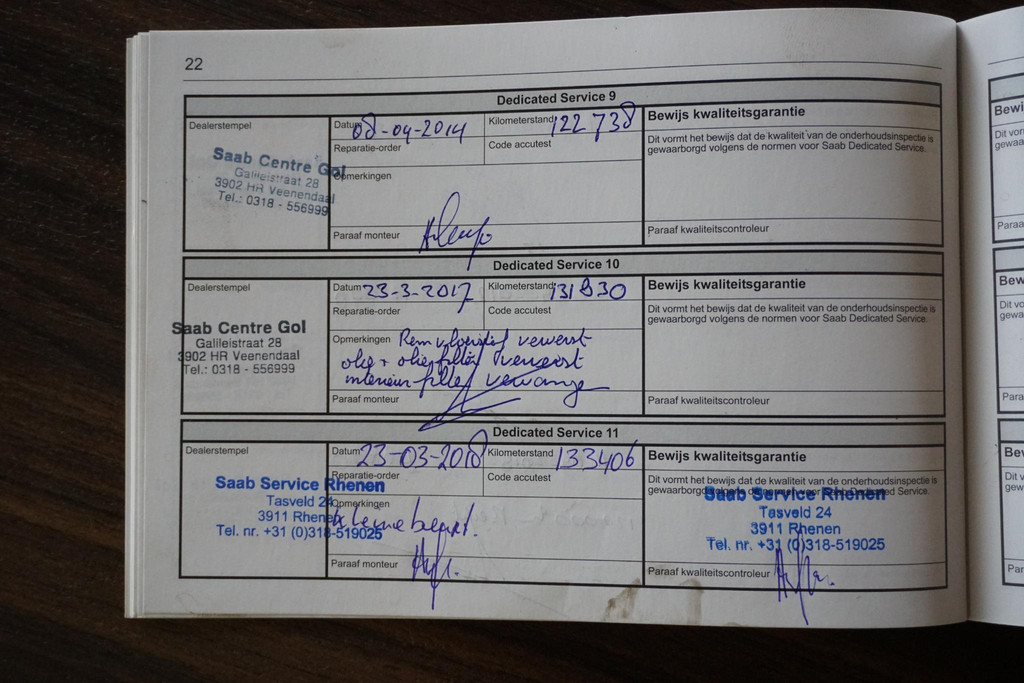 22
Dedicated Service 9
Dealerstempel
Datum 08-04-2014
Kilometerstand 122 738
Bewijs kwaliteitsgarantie
Reparatie-order
Code accutest
Dit vormt het bewijs dat de kwaliteit van de onderhoudsinspectie is
gewaarborgd volgens de normen voor Saab Dedicated Service.
Saab Centre Gol
Galileistraat 28
3902 HR Veenendaal
Tel.: 0318 - 556999
Opmerkingen
Paraaf monteur
Paraaf kwaliteitscontroleur
Dedicated Service 10
Dealerstempel
Datum 23-3-2017
Kilometerstand 131830
Bewijs kwaliteitsgarantie
Reparatie-order
Code accutest
Dit vormt het bewijs dat de kwaliteit van de onderhoudsinspectie is
gewaarborgd volgens de normen voor Saab Dedicated Service.
Saab Centre Gol
Galileistraat 28
3902 HR Veenendaal
Tel.: 0318 - 556999
Opmerkingen Rem vloeistof ververst
olie + olie filter ververst
interieur filter vervangen
Paraaf monteur
Paraaf kwaliteitscontroleur
Dedicated Service 11
Dealerstempel
Datum 23-03-2018
Kilometerstand 133406
Bewijs kwaliteitsgarantie
Reparatie-order
Code accutest
Dit vormt het bewijs dat de kwaliteit van de onderhoudsinspectie is
gewaarborgd volgens de normen voor Saab Dedicated Service.
Saab Service Rhenen
Tasveld 24
3911 Rhenen
Tel. nr. +31 (0)318-519025
Opmerkingen
kleine beurt.
Saab Service Rhenen
Tasveld 24
3911 Rhenen
Tel. nr. +31 (0)318-519025
Paraaf monteur
Paraaf kwaliteitscontroleur